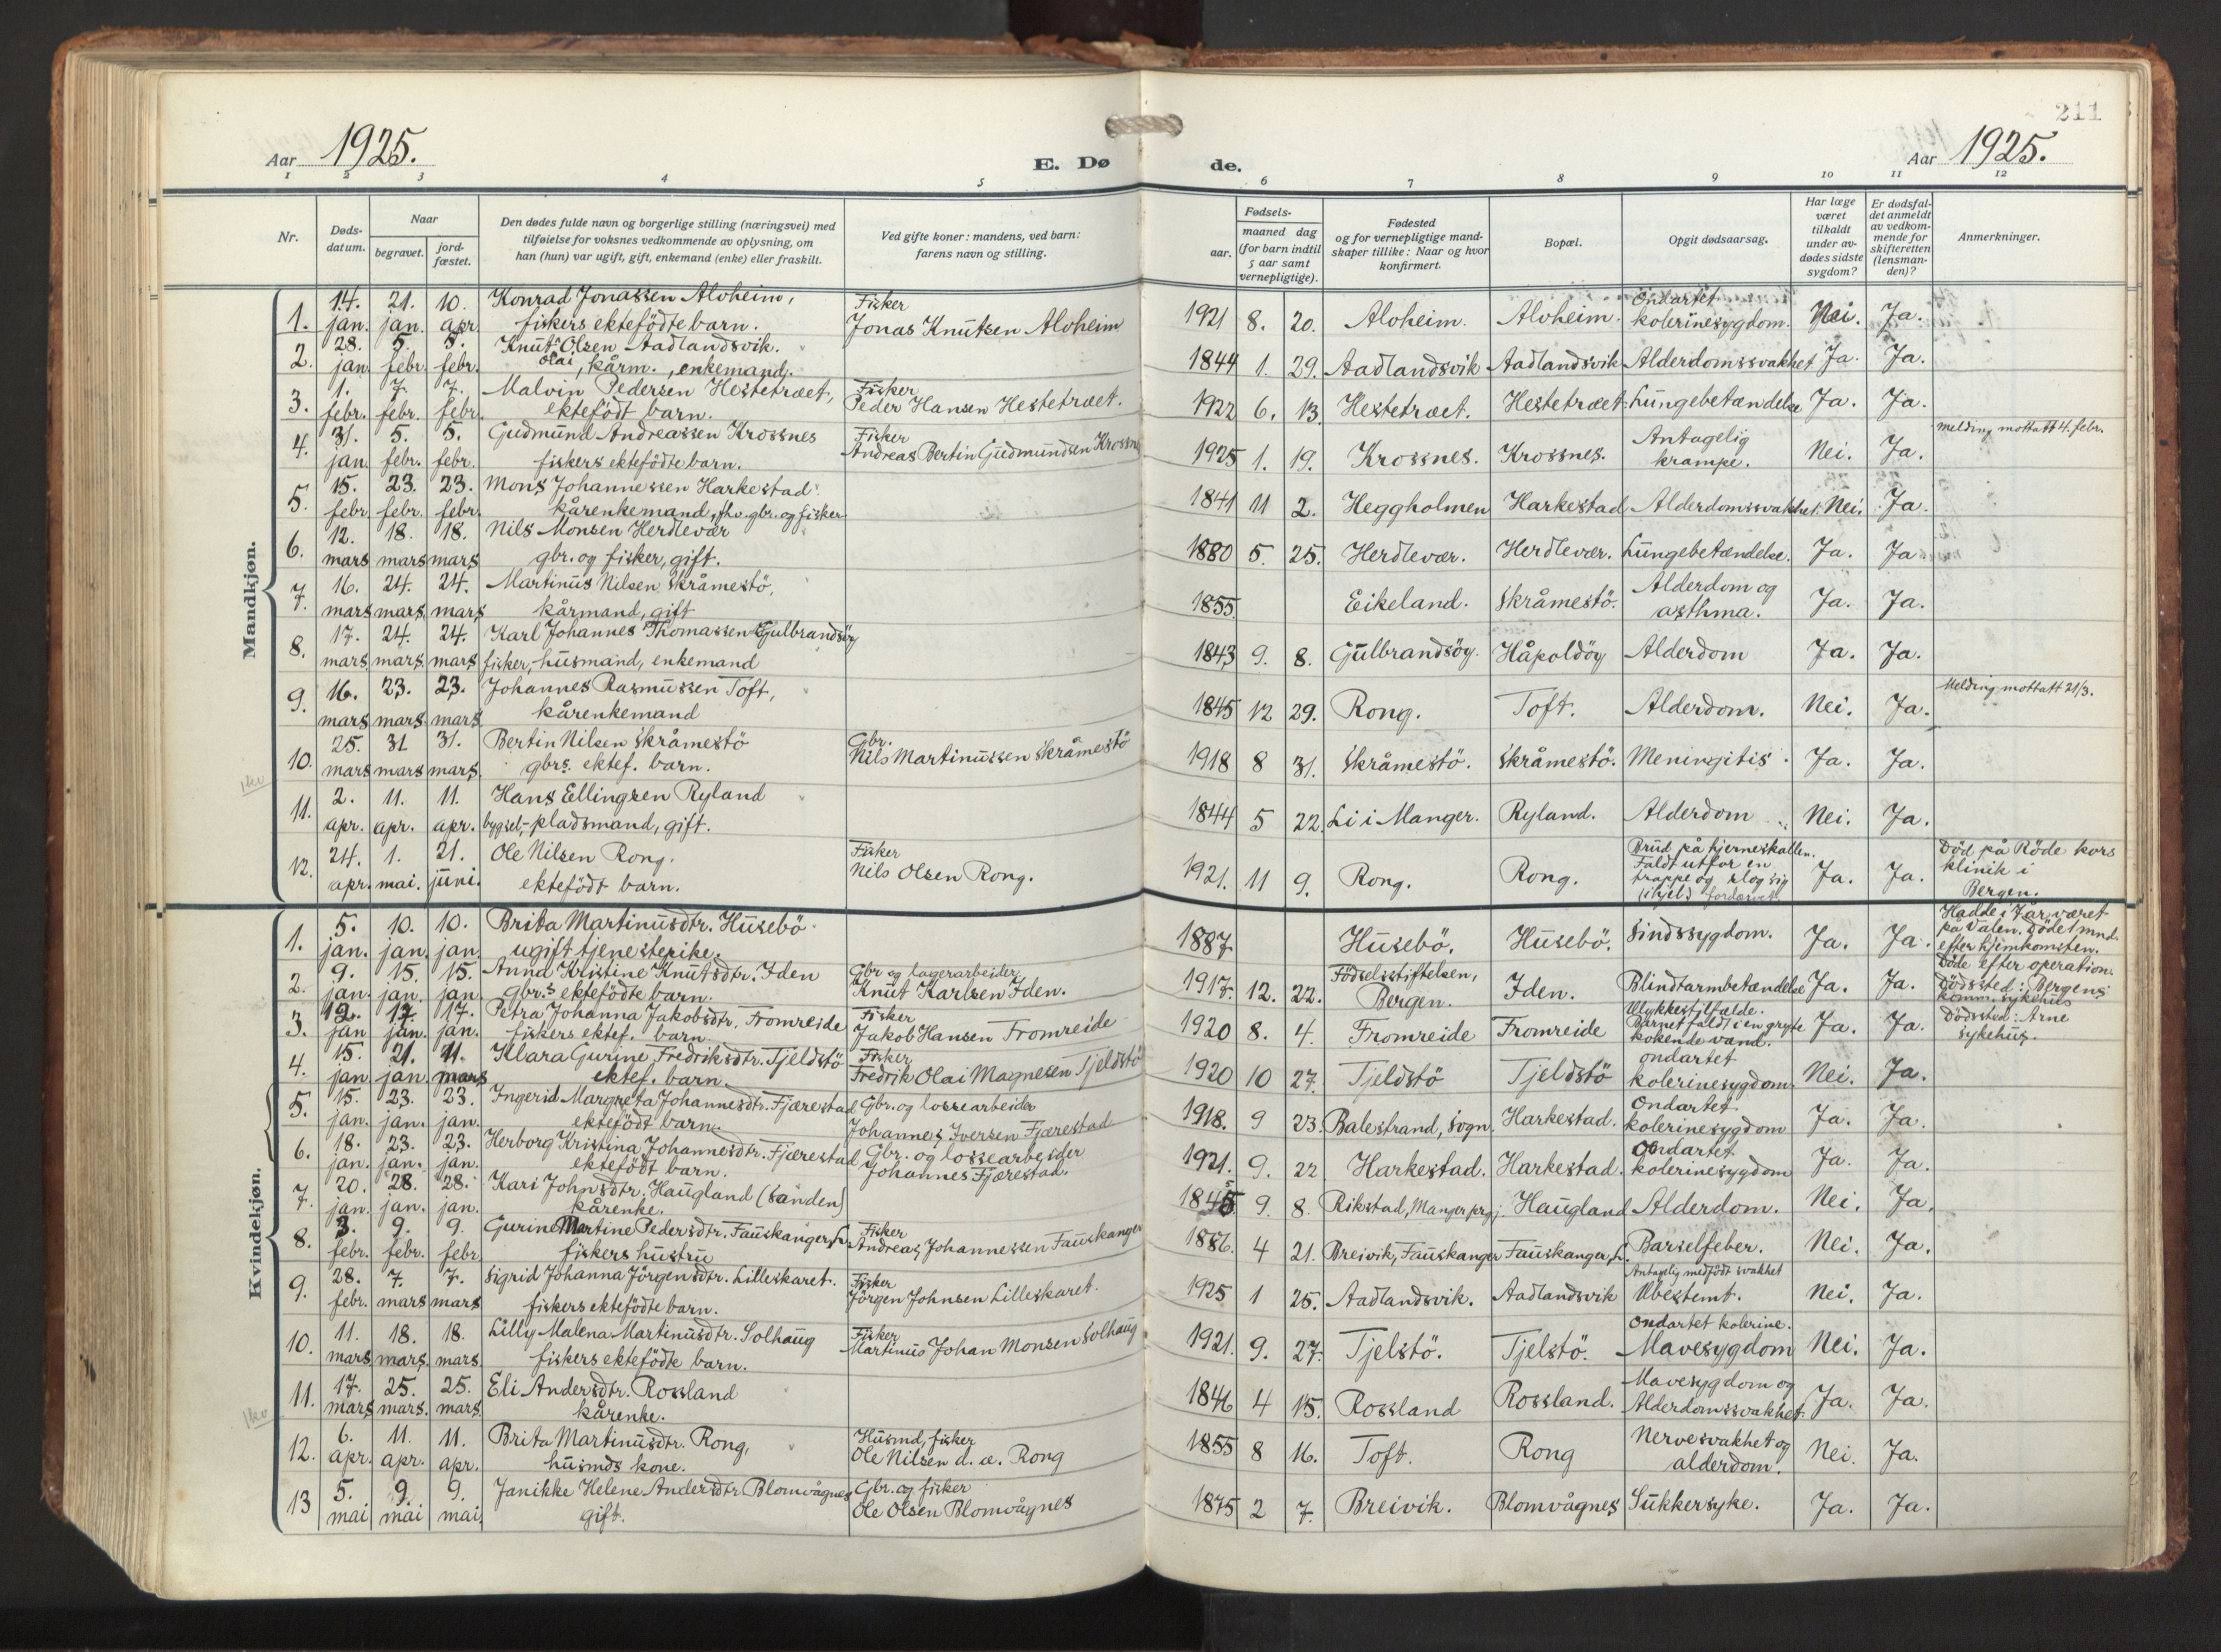 211
Aar 1925.
E. Dø de.
Aar 1925.
1 2 3 4 5 6 7 8 9 10 11 12
Nr.
Døds-
datum.
Naar
begravet.
jord-
fæstet.
Den dødes fulde navn og borgerlige stilling (næringsvei) med
tilføielse for voksnes vedkommende av oplysning, om
han (hun) var ugift, gift, enkemand (enke) eller fraskilt.
Ved gifte koner: mandens, ved barn:
farens navn og stilling.
Fødsels-
aar.
maaned dag
(for barn indtil
5 aar samt
vernepligtige).
Fødested
og for vernepligtige mand-
skaper tillike: Naar og hvor
konfirmert.
Bopæl.
Opgit dødsaarsag.
Har læge
været
tilkaldt
under av-
dødes sidste
sygdom?
Er dødsfal-
det anmeldt
av vedkom-
mende for
skifteretten
(lensman-
den)?
Anmerkninger.
Mandkjøn.
14. 21. 10. Konrad Jonassen Aloheim, Fisker Ondartet
1. jan. jan. apr. fiskers ektefödte barn. Jonas Knutsen Aloheim 1921 8. 20. Aloheim. Aloheim. kolerinesygdom. Nei. Ja.
28. 5. 5. Knut Olsen Aadlandsvik.
2. jan. febr. febr. Olai, kårm., enkemand. 1844 1. 29. Aadlandsvik Aadlandsvik Alderdomssvakhet Ja. Ja.
1. 7. 7. Malvin Pedersen Hestetræet, Fisker
3. febr. febr. febr. ektefödt barn. Peder Hansen Hestetræet. 1922 6. 13. Hestetræet. Hestetræet. Lungebetændelse Ja. Ja.
31. 5. 5. Gudmund Andreassen Krossnes Fisker Antagelig melding mottatt 4. febr.
4. jan. febr. febr. fiskers ektefödte barn. Andreas Bertin Gudmundsen Krossnes 1925 1. 19. Krossnes. Krossnes. krampe. Nei. Ja.
15. 23. 23. Mons Johannessen Harkestad
5. febr. febr. febr. kårenkemand, fhv. gbr. og fisker 1841 11 2. Heggholmen Harkestad Alderdomssvakhet. Nei. Ja.
12. 18. 18. Nils Monsen Herdlevær
6. mars mars mars gbr. og fisker, gift. 1880 5. 25. Herdlevær. Herdlevær. Lungebetændelse. Ja. Ja
16. 24. 24. Martinus Nilsen Skråmestö, Alderdom og
7. mars mars mars kårmand, gift 1855. Eikeland. Skråmestö. asthma. Ja. Ja.
17. 24. 24. Karl Johannes Thomassen Gulbrandsöy
8. mars mars mars fisker, husmand, enkemand 1843 9. 8. Gulbrandsöy. Håpoldöy Alderdom Ja. Ja.
16. 23. 23. Johannes Rasmussen Toft, Melding mottatt 21/3.
9. mars mars. mars. kårenkemand 1845 12 29. Rong. Toft. Alderdom. Nei. Ja.
25. 31 31. Bertin Nilsen Skråmestö Gbr.
10. mars mars mars. gbrs. ektef. barn. Nils Martinussen Skråmestö 1918 8 31. Skråmestö. Skråmestö. Meningitis. Ja. Ja.
2. 11. 11. Hans Ellingsen Ryland
11. apr. apr. apr. bygsel-pladsmand, gift. 1844 5 22. Li i Manger. Ryland. Alderdom Nei. Ja.
24. 1. 21. Ole Nilsen Rong. Fisker Brud på hjerneskallen. Död på Röde kors
12. apr. mai. juni. ektefödt barn. Nils Olsen Rong. 1921. 11 9. Rong. Rong. Faldt utfor en Ja. Ja. klinik i
trappe og slog sig Bergen.
(ihjel) fordærvet.
Kvindekjøn.
5. 10. 10. Brita Martinusdtr. Husebö Hadde i 7 år været
1. jan. jan. jan. ugift tjenestepike. 1887 Husebö. Husebö. Sindssygdom. Ja. Ja. på Valen. Döde 1 mnd.
efter hjemkomsten.
9. 15. 15. Anna Kristine Knutsdtr. Iden Gbr og lagerarbeider Födselsstiftelsen, Döde efter operation.
2. jan. jan. jan. gbr.s ektefödte barn. Knut Karlsen Iden. 1917. 12. 22. Bergen. Iden. Blindtarmbetændelse Ja. Ja. Dödssted: Bergens
komm. sykehus
12. 17. 17. Petra Johanna Jakobsdtr. Fromreide Fisker Ulykkestilfælde. Dödssted: Arne
3. jan jan. jan. fiskers ektef. barn Jakob Hansen Fromreide 1920 8. 4. Fromreide Fromreide Barnet faldt i en gryte Ja. Ja. sykehus.
kokende vand.
15. 21. 11. Klara Gurine Fredriksdtr. Tjeldstö Fisker ondartet
4. jan jan. mars ektef. barn. Fredrik Olai Magnesen Tjeldstö 1920 10 27. Tjeldstö Tjeldstö kolerinesygdom. Nei. Ja.
15. 23. 23. Ingerid Margreta Johannesdtr. Fjærestad Gbr. og lossearbeider Ondartet
5. jan. jan. jan. ektefödt barn. Johannes Iversen Fjærestad 1918. 9 23. Balestrand, Sogn. Harkestad. kolerinesygdom Ja. Ja.
18. 23. 23. Herborg Kristina Johannesdtr. Fjærestad Gbr. og lossearbeider Ondartet
6. jan. jan. jan. ektefödt barn. Johannes Fjærestad. 1921. 9. 22 Harkestad. Harkestad. kolerinesygdom Ja. Ja.
20. 28. 28. Kari Johnsdtr. Haugland (Sanden)
7. jan. jan. jan. kårenke. 1845 9. 8. Rikstad, Manger prgj. Haugland Alderdom. Nei. Ja.
3. 9. 9. Gurine Martine Pedersdtr. Fauskanger, Fisker
8. febr. febr. febr. fiskers hustru Andreas Johannessen Fauskanger 1886. 4 21. Breivik, Fauskanger Fauskanger, Barselfeber. Nei. Ja.
28. 7. 7. Sigrid Johanna Jörgensdtr. Lilleskaret. Fisker Antagelig medfödt svakhet
9. febr. mars mars fiskers ektefödte barn. Jörgen Johnsen Lilleskaret. 1925 1 25. Aadlandsvik. Aadlandsvik Ubestemt. Nei. Ja.
11. 18. 18. Lilly Malena Martinusdtr. Solhaug Fisker Ondartet kolerine.
10. mars mars. mars. fiskers ektefödte barn. Martinus Johan Monsen Solhaug 1921. 9. 27. Tjelstö. Tjelstö. Mavesygdom Nei. Ja.
17. 25. 25. Eli Andersdtr. Rossland Mavesygdom og
11. mars mars. mars. kårenke. 1846 4 15. Rossland Rossland. Alderdomssvakhet. Ja. Ja.
6. 11. 11. Brita Martinusdtr. Rong, Husmd, fisker Nervesvakhet og
12. apr. apr. apr. husmds kone. Ole Nilsen d. æ. Rong 1855 8 16. Toft. Rong alderdom. Nei. Ja.
5. 9. 9. Janikke Helene Andersdtr. Blomvågnes Gbr. og fisker
13 mai mai mai. gift. Ole Olsen Blomvågnes 1875 2 7. Breivik. Blomvågnes Sukkersyke. Ja. Ja.